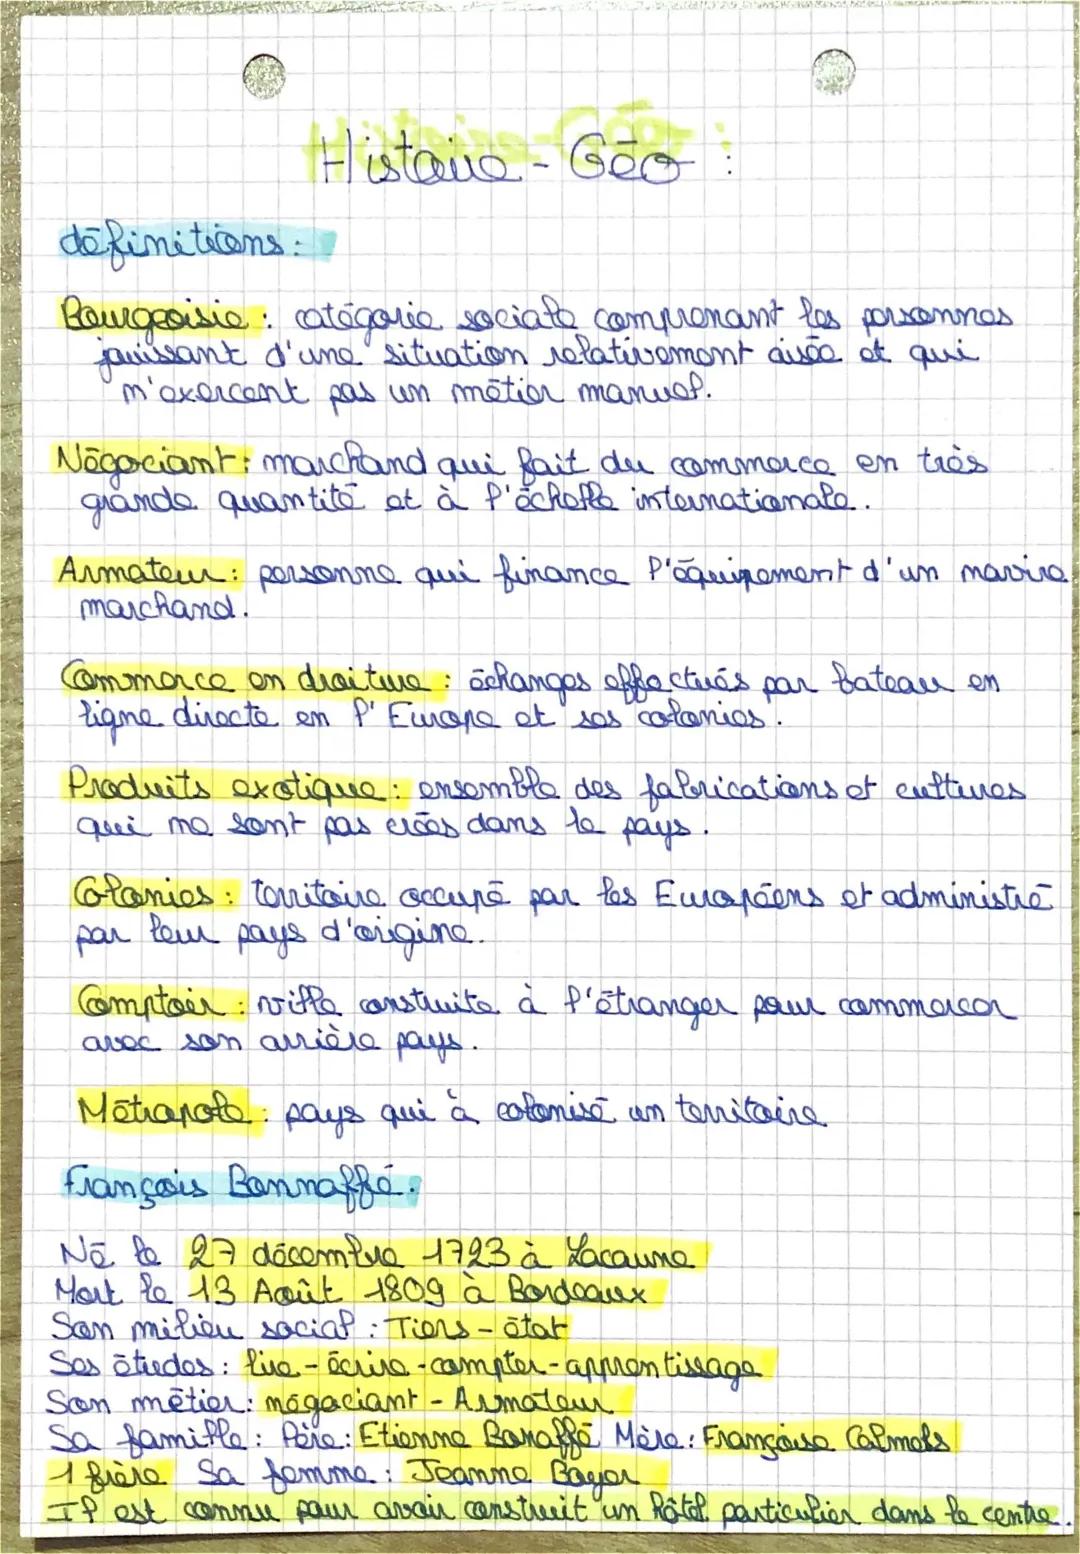 Histoire - Géo :
définitions :
Bourgeoisie : catégorie sociale comprenant les personnes
jouissant d'une situation relativement aisée et qui
n'exercent pas un métier manuel.
Négociant : marchand qui fait du commerce en très
grande quantité et à l'échelle internationale.
Armateur : personne qui finance l'équipement d'un navire
marchand.
Commerce en droiture : échanges effectués par bateau en
ligne directe en l'Europe et ses colonies.
Produits exotique : ensemble des fabrications et cultures
qui ne sont pas crées dans le pays.
Colonies : territoire occupé par les Européens et administré
par leur pays d'origine.
Comptoir : ville construite à l'étranger pour commercer
avec son arrière pays.
Métropole : pays qui à colonisé un territoire
François Bonnaffé :
Né le 27 décembre 1723 à Lacaune
Mort le 13 Août 1809 à Bordeaux
Son milieu social : Tiers-état
Ses études : lire - écrire - compter - apprentissage
Son métier : négociant - Armateur
Sa famille : Père : Etienne Bonaffé Mère : Françoise Calmels
1 frère Sa femme : Jeanne Boyer
Il est connu pour avoir construit un hôtel particulier dans le centre.